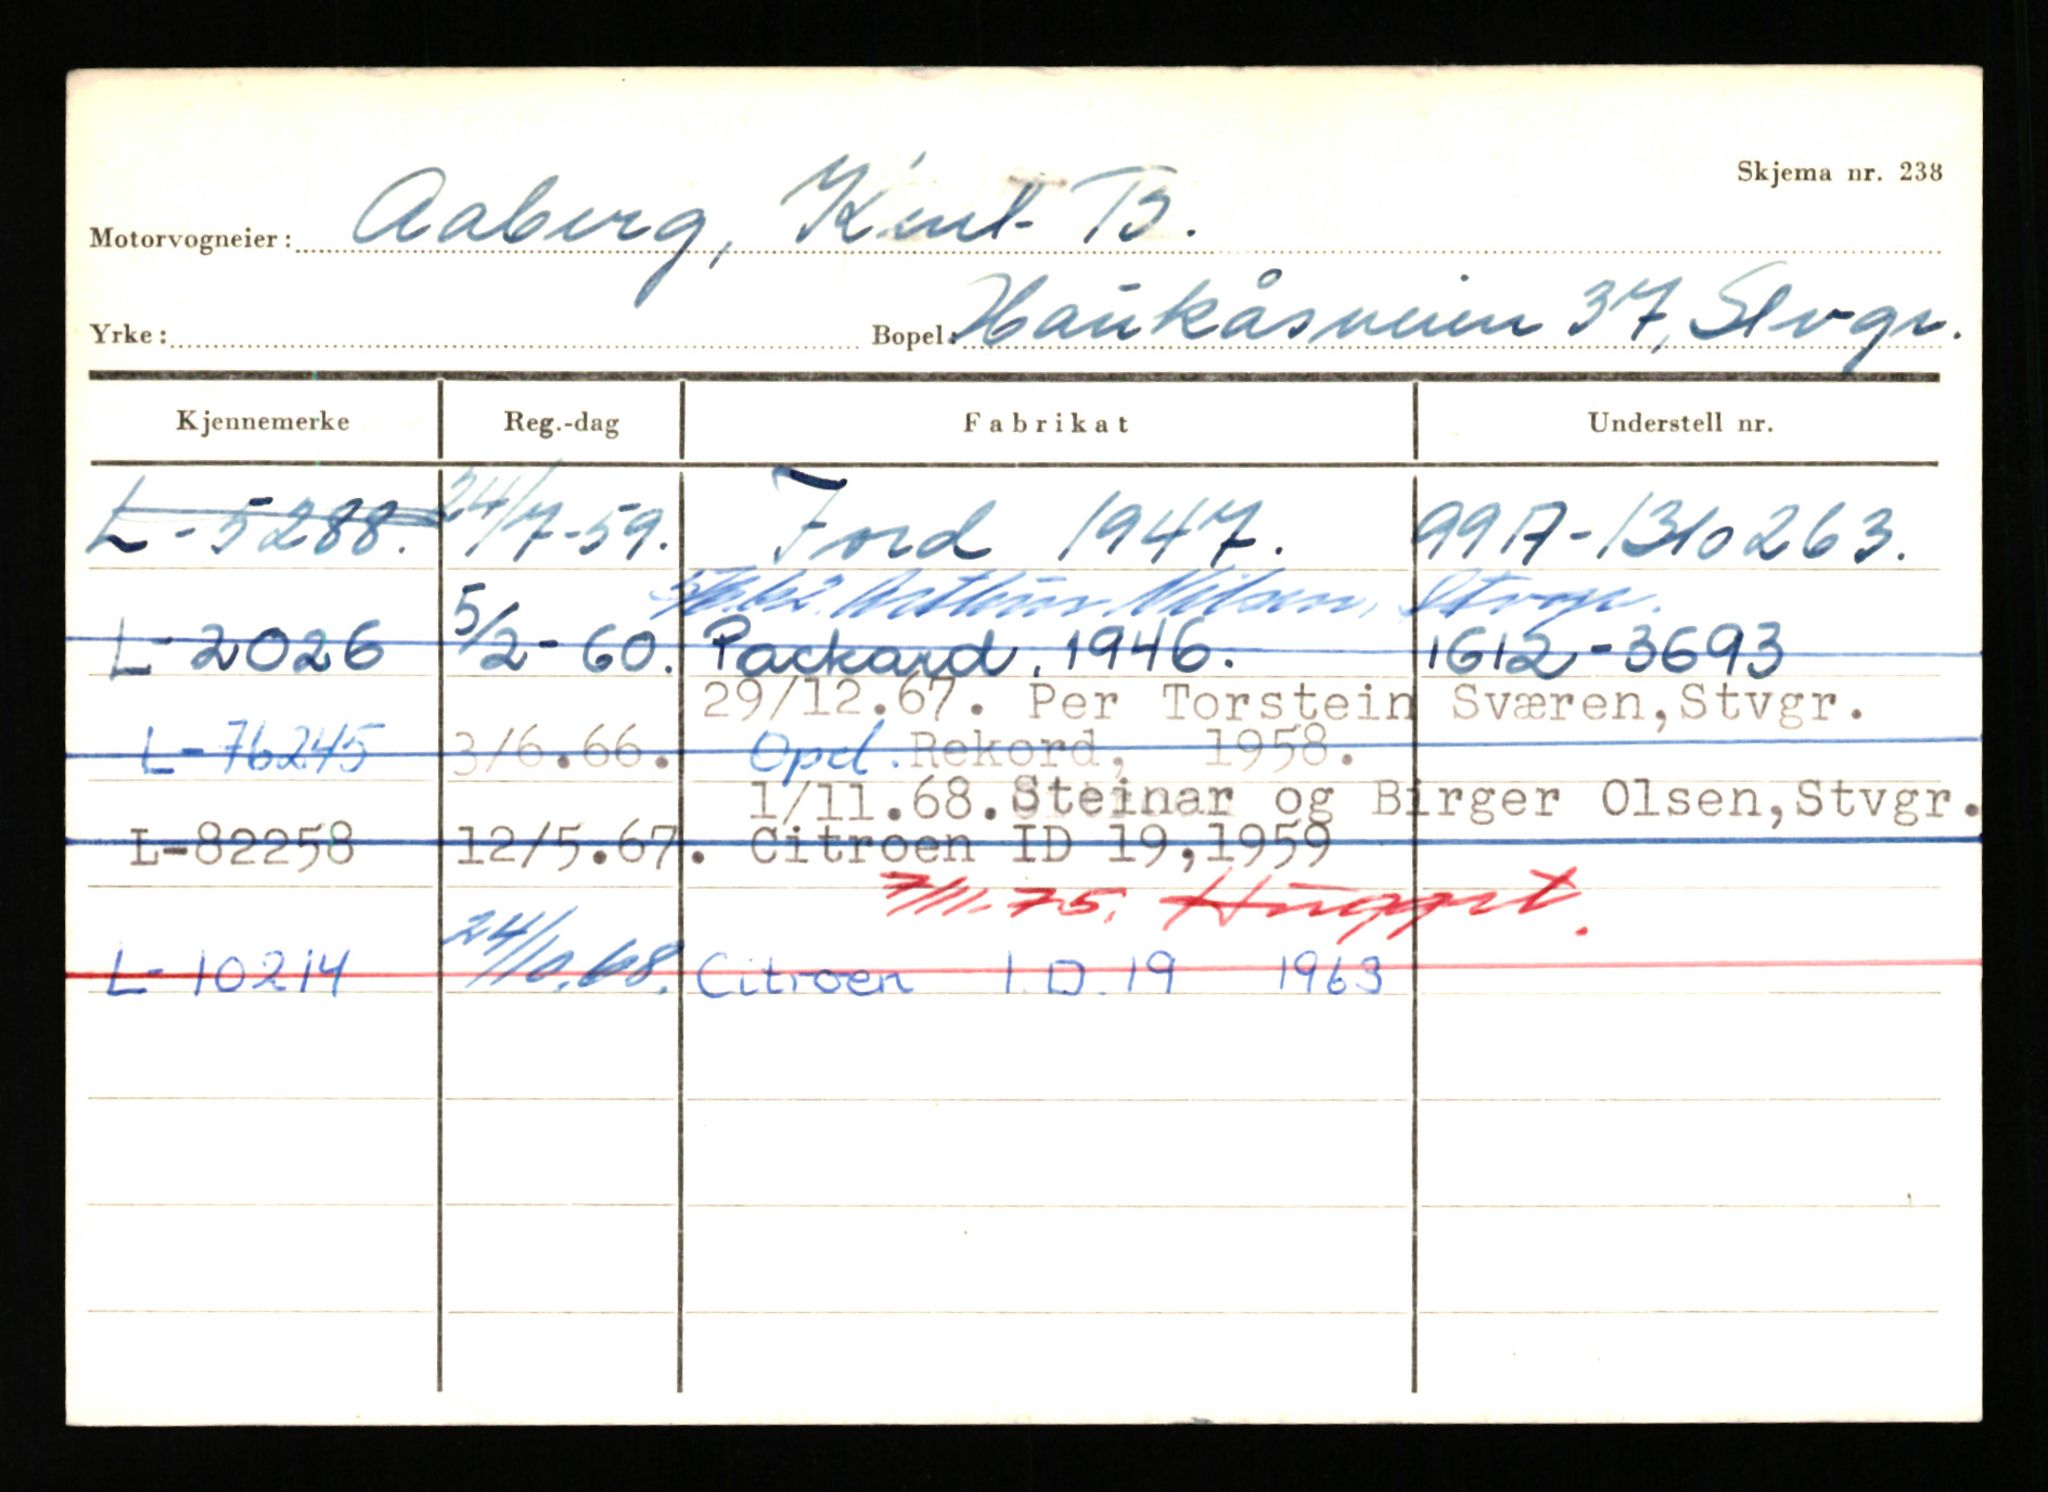 Skjema nr. 238
Motorvogneier: Aaberg, Knut B.
Yrke: Bopel: Haukåsveien 37, Stvgr.
Kjennemerke Reg.-dag Fabrikat Understell nr.
L-5288. 24/7-59. Ford 1947. 99A-1310263.
Arthur Nilsen, Stvgr.
L-2026 5/2-60. Packard, 1946. 1612-3693
29/12.67. Per Torstein Sværen,Stvgr.
L-76245 3/6.66. Opel. Rekord, 1958.
1/11.68.Steinar og Birger Olsen,Stvgr.
L-82258 12/5.67. Citroen ID 19,1959
7/11.75. Hugget.
L-10214 24/10.68. Citroen I.D.19 1963